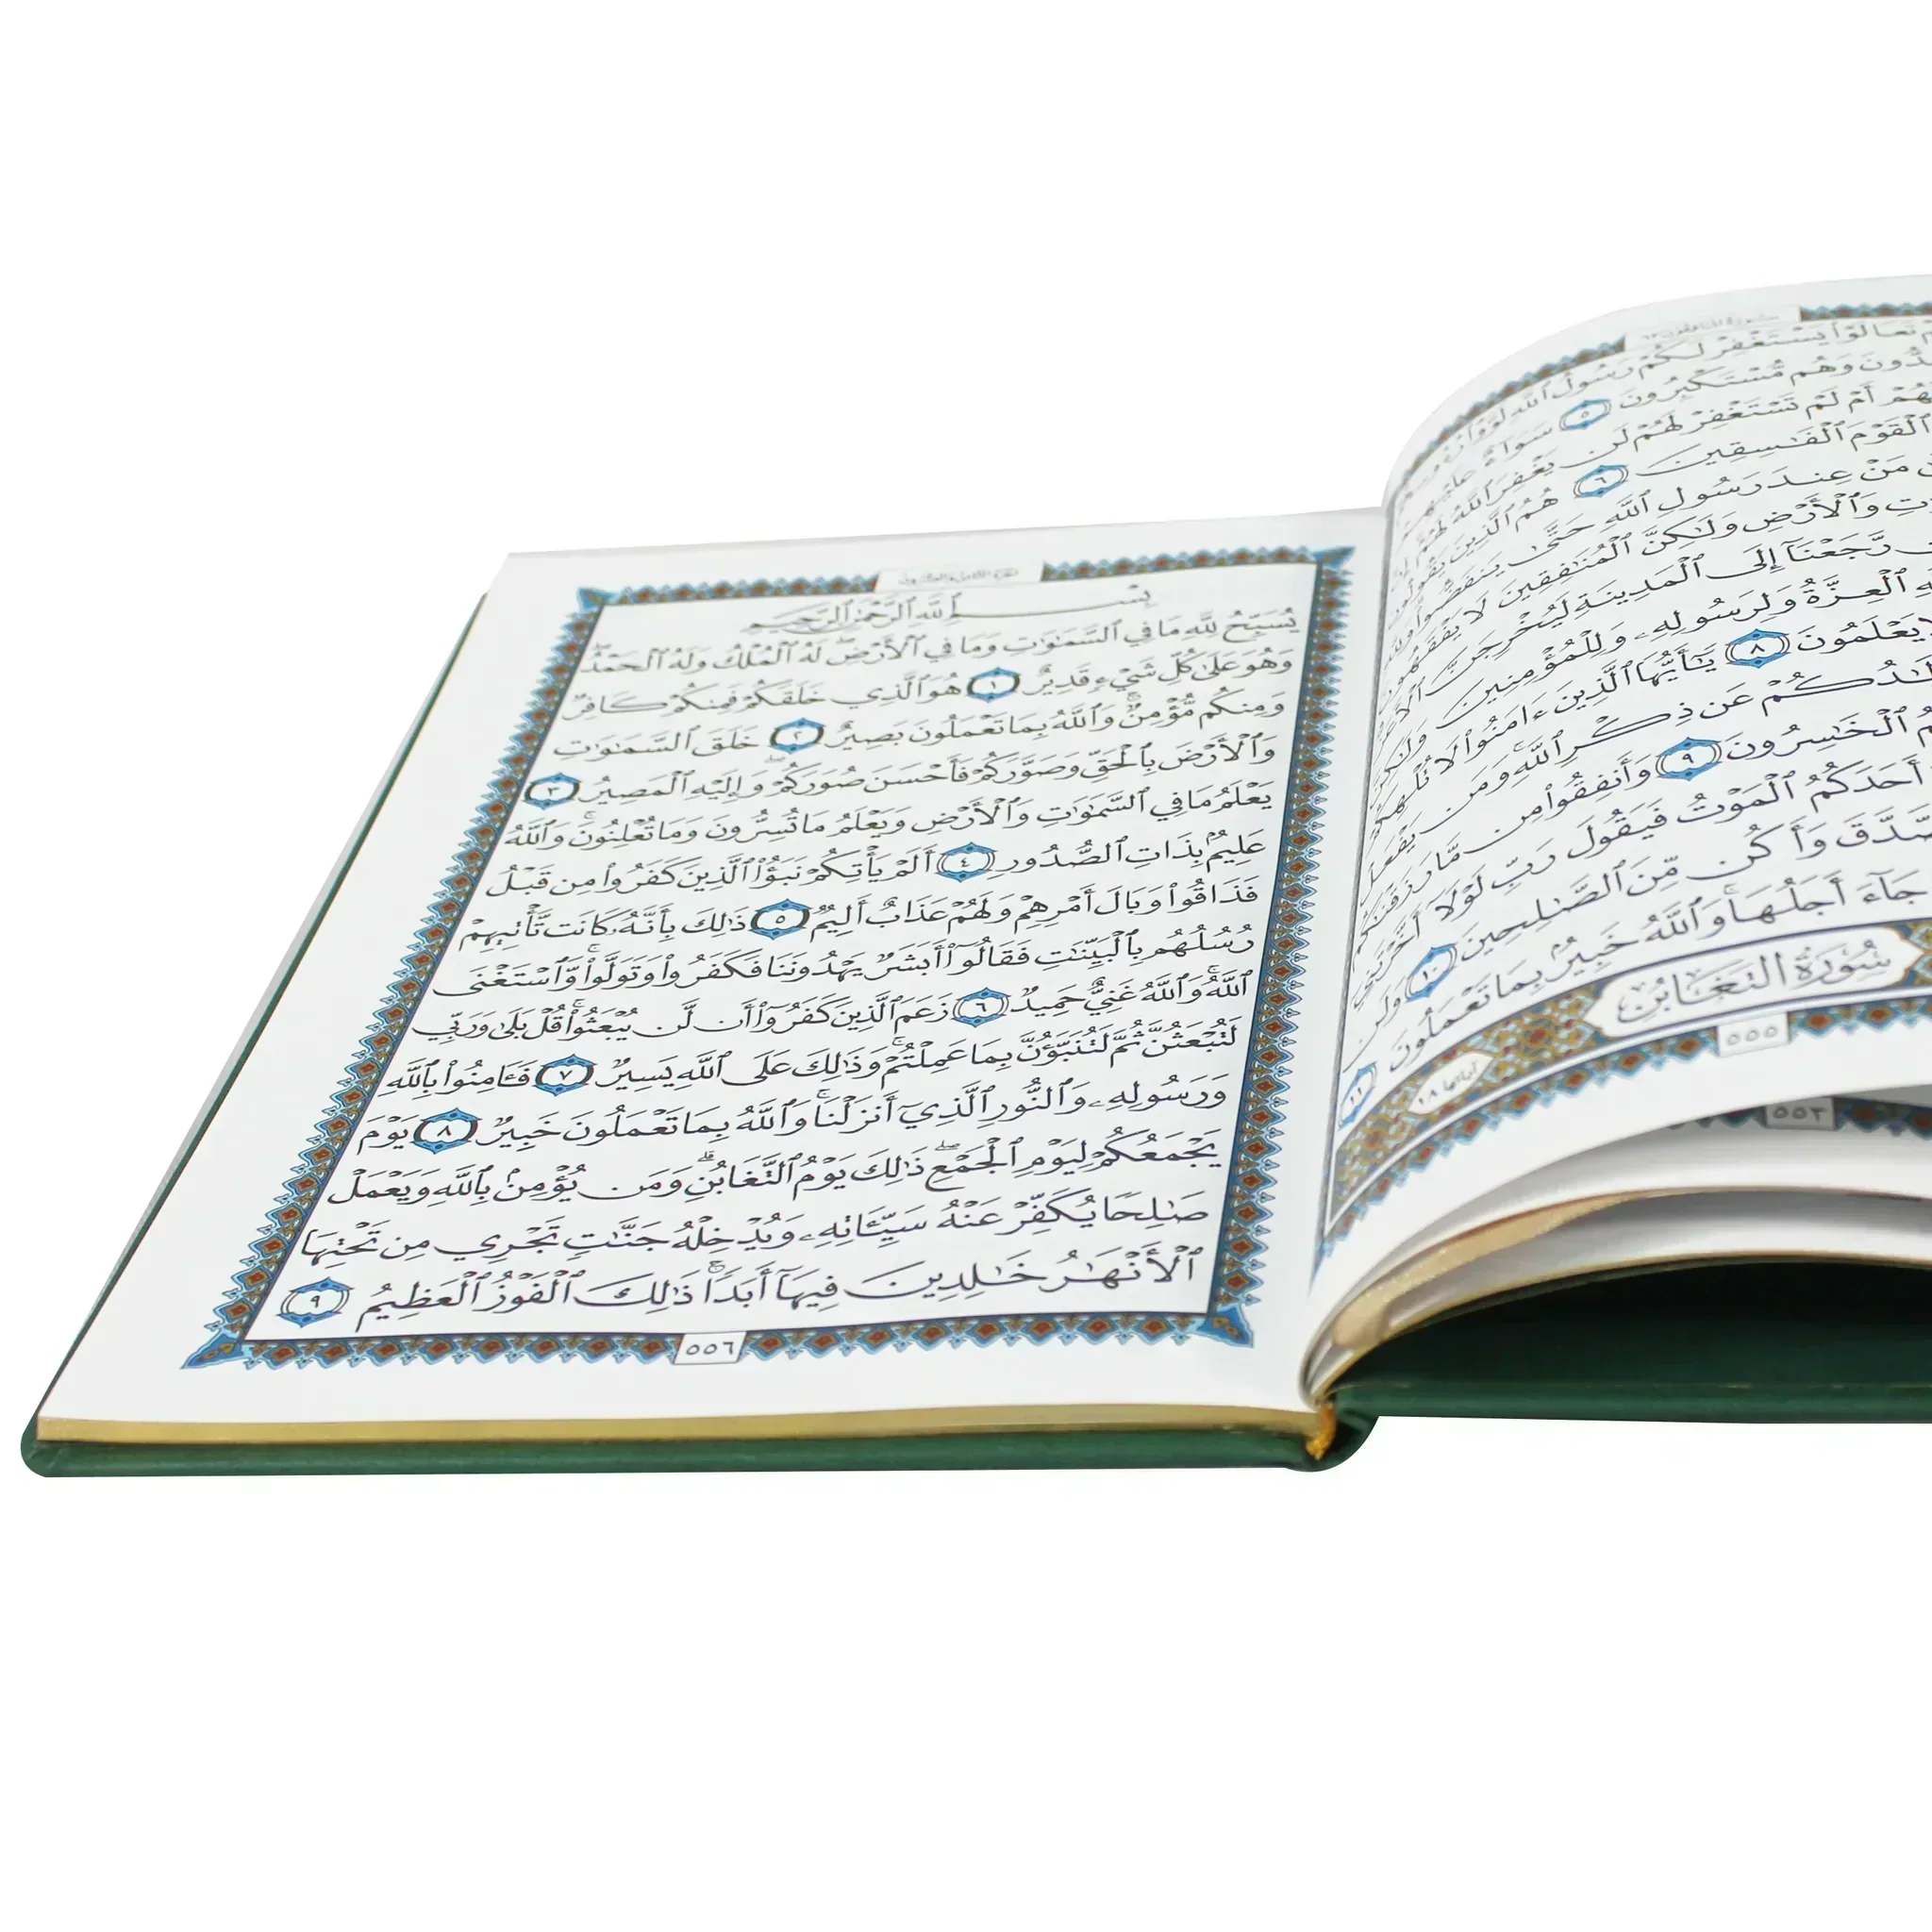 تَعَالَوْا۟ يَسْتَغْفِرْ لَكُمْ رَسُولُ ٱللَّهِ لَوَّوْا۟
وَهُم مُّسْتَكْبِرُونَ ٥ سَوَآءٌ عَلَيْهِمْ
أَمْ لَمْ تَسْتَغْفِرْ لَهُمْ لَن يَغْفِرَ ٱللَّهُ لَهُمْ
ٱلْقَوْمَ ٱلْفَـٰسِقِينَ ٦ هُمُ ٱلَّذِينَ يَقُولُونَ
مَنْ عِندَ رَسُولِ ٱللَّهِ حَتَّىٰ يَنفَضُّوا۟
وَٱلْأَرْضِ وَلَـٰكِنَّ ٱلْمُنَـٰفِقِينَ لَا يَفْقَهُونَ
رَّجَعْنَآ إِلَى ٱلْمَدِينَةِ لَيُخْرِجَنَّ
ٱلْعِزَّةُ وَلِرَسُولِهِۦ وَلِلْمُؤْمِنِينَ وَلَـٰكِنَّ
يَعْلَمُونَ ٨ يَـٰٓأَيُّهَا ٱلَّذِينَ ءَامَنُوا۟ لَا تُلْهِكُمْ
عَن ذِكْرِ ٱللَّهِ وَمَن يَفْعَلْ
ٱلْخَـٰسِرُونَ ٩ وَأَنفِقُوا۟ مِن مَّا رَزَقْنَـٰكُم
أَحَدَكُمُ ٱلْمَوْتُ فَيَقُولَ رَبِّ لَوْلَآ أَخَّرْتَنِىٓ
وَأَكُن مِّنَ ٱلصَّـٰلِحِينَ ١٠ وَلَن
جَآءَ أَجَلُهَا وَٱللَّهُ خَبِيرٌۢ بِمَا تَعْمَلُونَ ١١
سُورَةُ التَّغَابُنِ
آياتها ١٨
٥٥٥
٥٥٣
بِسْمِ ٱللَّهِ ٱلرَّحْمَـٰنِ ٱلرَّحِيمِ
يُسَبِّحُ لِلَّهِ مَا فِي ٱلسَّمَـٰوَٰتِ وَمَا فِي ٱلْأَرْضِ لَهُ ٱلْمُلْكُ وَلَهُ ٱلْحَمْدُ
وَهُوَ عَلَىٰ كُلِّ شَيْءٍ قَدِيرٌ ١ هُوَ ٱلَّذِي خَلَقَكُمْ فَمِنكُمْ كَافِرٌ
وَمِنكُم مُّؤْمِنٌ وَٱللَّهُ بِمَا تَعْمَلُونَ بَصِيرٌ ٢ خَلَقَ ٱلسَّمَـٰوَٰتِ
وَٱلْأَرْضَ بِٱلْحَقِّ وَصَوَّرَكُمْ فَأَحْسَنَ صُوَرَكُمْ وَإِلَيْهِ ٱلْمَصِيرُ ٣
يَعْلَمُ مَا فِي ٱلسَّمَـٰوَٰتِ وَٱلْأَرْضِ وَيَعْلَمُ مَا تُسِرُّونَ وَمَا تُعْلِنُونَ وَٱللَّهُ
عَلِيمٌۢ بِذَاتِ ٱلصُّدُورِ ٤ أَلَمْ يَأْتِكُمْ نَبَؤُا۟ ٱلَّذِينَ كَفَرُوا۟ مِن قَبْلُ
فَذَاقُوا۟ وَبَالَ أَمْرِهِمْ وَلَهُمْ عَذَابٌ أَلِيمٌ ٥ ذَٰلِكَ بِأَنَّهُۥ كَانَت تَّأْتِيهِمْ
رُسُلُهُم بِٱلْبَيِّنَـٰتِ فَقَالُوٓا۟ أَبَشَرٌ يَهْدُونَنَا فَكَفَرُوا۟ وَتَوَلَّوا۟ وَّٱسْتَغْنَى
ٱللَّهُ وَٱللَّهُ غَنِيٌّ حَمِيدٌ ٦ زَعَمَ ٱلَّذِينَ كَفَرُوٓا۟ أَن لَّن يُبْعَثُوا۟ قُلْ بَلَىٰ وَرَبِّي
لَتُبْعَثُنَّ ثُمَّ لَتُنَبَّؤُنَّ بِمَا عَمِلْتُمْ وَذَٰلِكَ عَلَى ٱللَّهِ يَسِيرٌ ٧ فَـَٔامِنُوا۟ بِٱللَّهِ
وَرَسُولِهِۦ وَٱلنُّورِ ٱلَّذِيٓ أَنزَلْنَا وَٱللَّهُ بِمَا تَعْمَلُونَ خَبِيرٌ ٨ يَوْمَ
يَجْمَعُكُمْ لِيَوْمِ ٱلْجَمْعِ ذَٰلِكَ يَوْمُ ٱلتَّغَابُنِ وَمَن يُؤْمِنۢ بِٱللَّهِ وَيَعْمَلْ
صَـٰلِحًا يُكَفِّرْ عَنْهُ سَيِّـَٔاتِهِۦ وَيُدْخِلْهُ جَنَّـٰتٍ تَجْرِي مِن تَحْتِهَا
ٱلْأَنْهَـٰرُ خَـٰلِدِينَ فِيهَآ أَبَدًا ذَٰلِكَ ٱلْفَوْزُ ٱلْعَظِيمُ ٩
٥٥٦